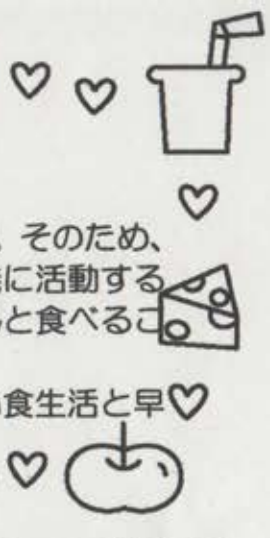 そのため、
に活動する
と食べるこ
食生活と早